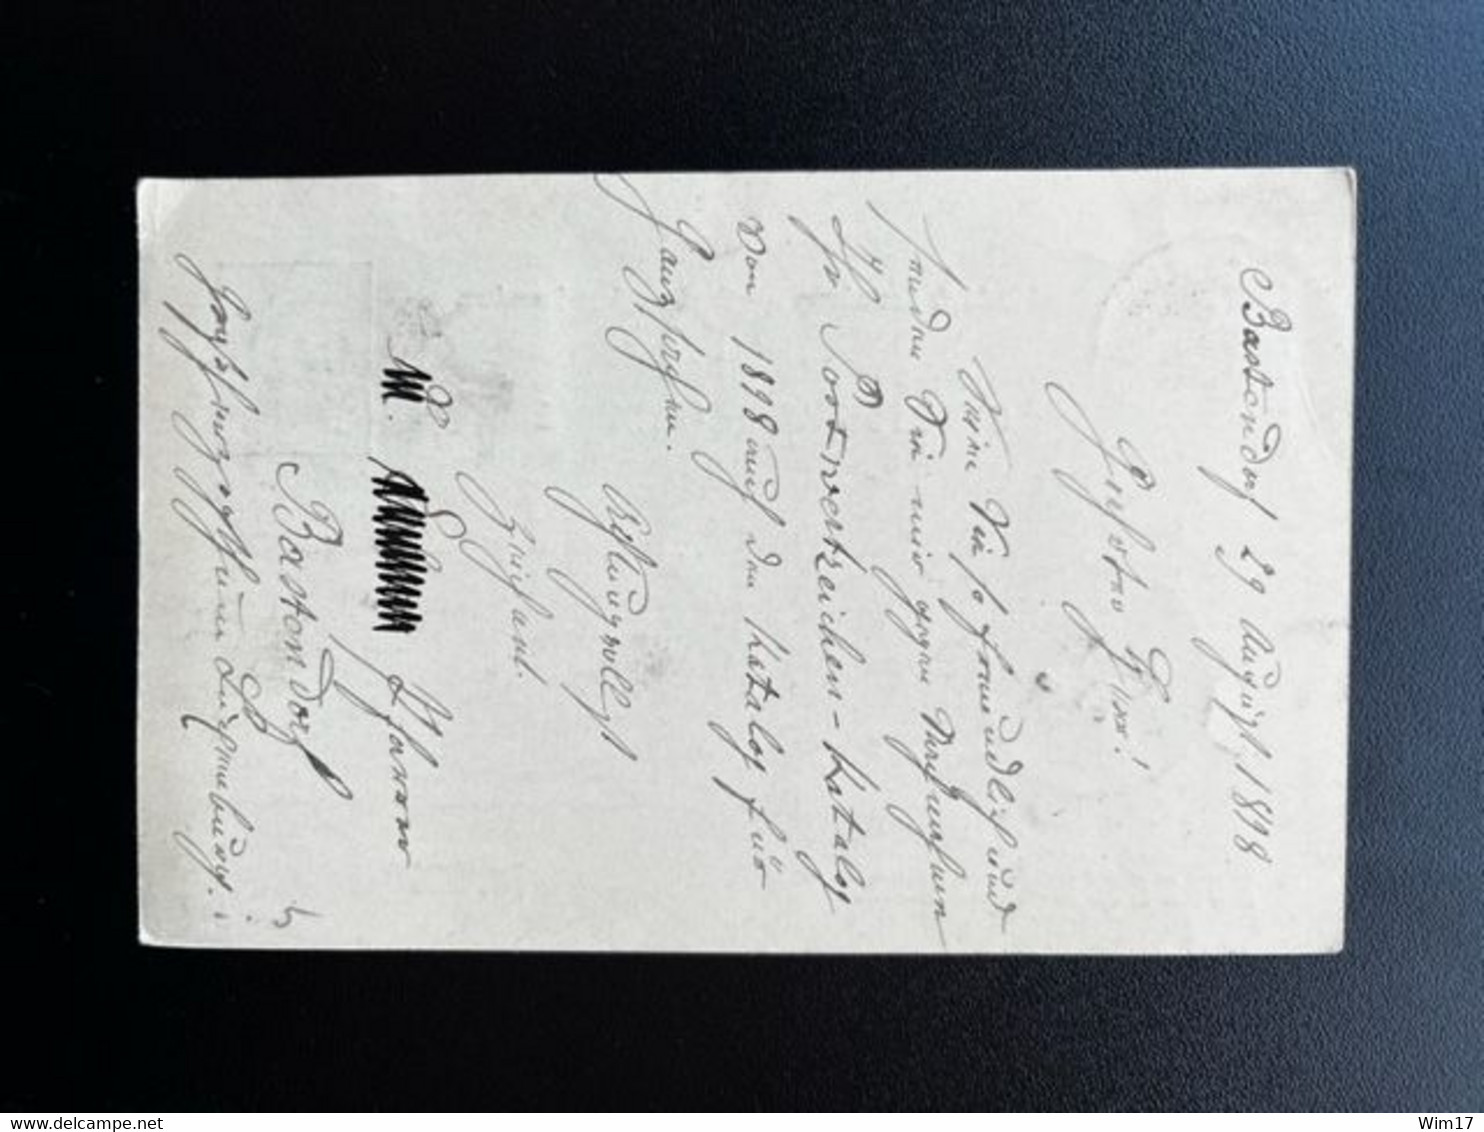 Bastendorf 29 August 1898
Geehrter Herr!
Seien Sie so freundlich und
senden Sie mir gegen
Postwertzeichen-Katalog
von 1898 auch den Katalog für
Ganzsachen.
Achtungsvollst
zeichnet
M. Pfarrer
Bastendorf
Großherzogthum Luxemburg.
Wim17